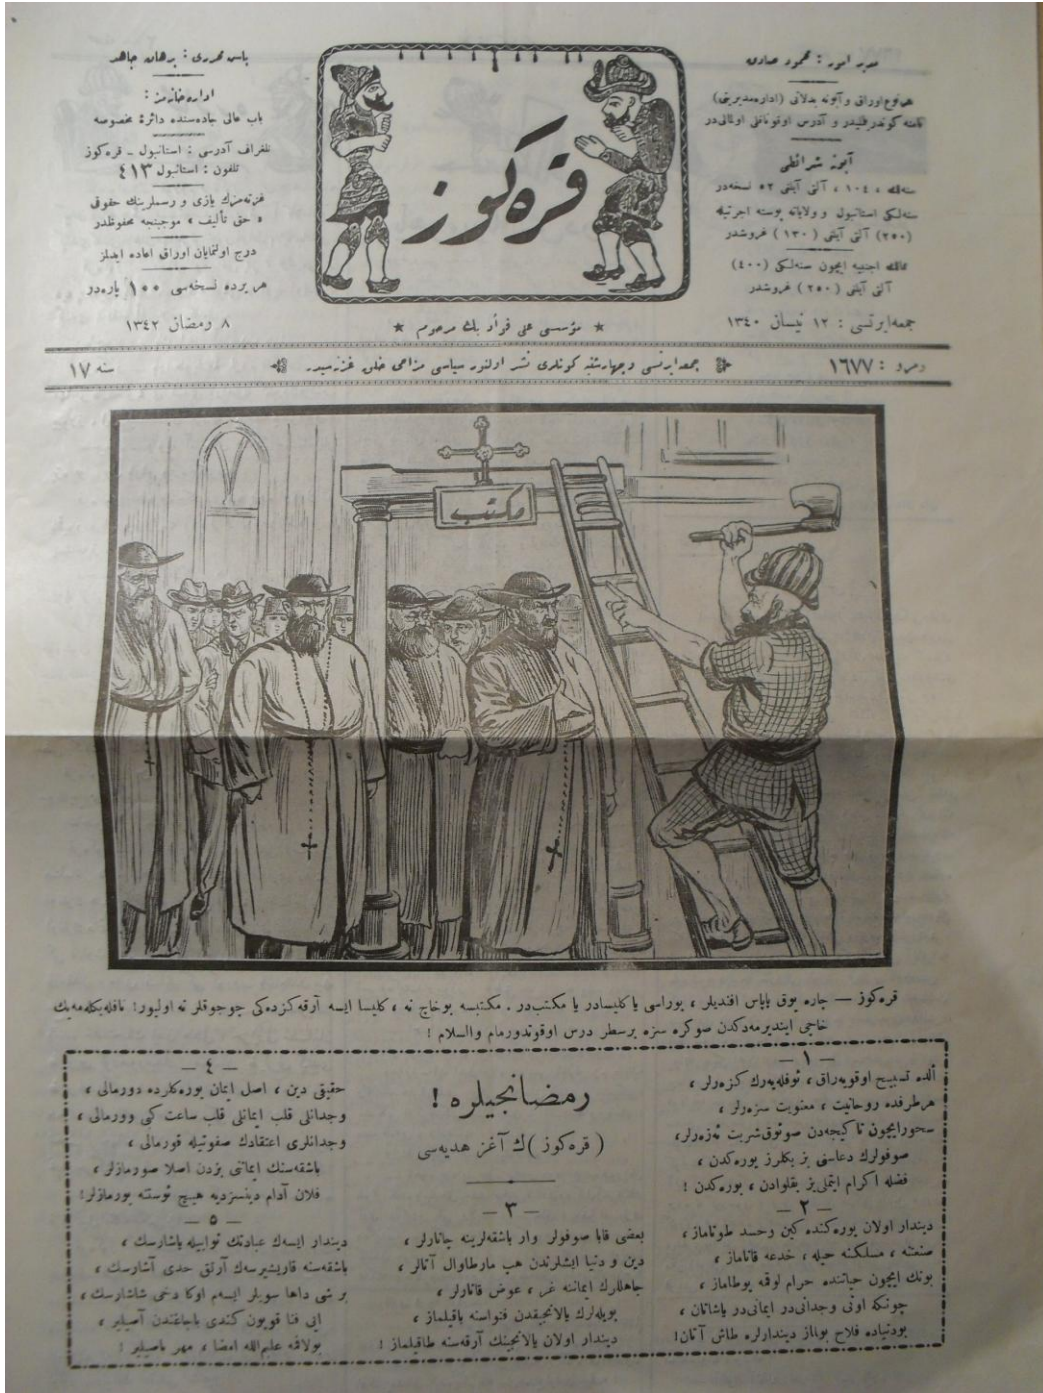 مدير امور : محمود صادق
هر نوع اوراق و آبونه بدلاتی (اداره مديريتی)
نامنه كوندرلملیدر و آدرس اوقوناقلی اولمالی‌در
آبونه شرائطی
سنه‌لك ۱۰٤ ، آلتی آيلغی ۵۲ نسخه‌در
سنه‌لكی استانبول و ولاياته پوسته اجرتیله
(۲۵۰) آلتی آيلغی (۱۳۰) غروشدر
ممالك اجنبيه ايچون سنه‌لكی (٤۰۰)
آلتی آيلغی (۲۵۰) غروشدر
جمعه‌ایرتسی : ۱۲ نیسان ۱۳٤۰
قره كوز
★ مؤسسی علی فؤاد بك مرحوم ★
باش محرری : برهان جاهد
اداره‌خانه‌مز :
باب عالی جاده‌سنده دائرهٔ مخصوصه
تلغراف آدرسی : استانبول ـ قره‌كوز
تلفون : استانبول ٤۱۳
غزته‌مزك یازی و رسملرینك حقوقی
« حق تألیف » موجبنجه محفوظدر
درج اولنمایان اوراق اعاده ایدلمز
هر یرده نسخه‌سی ۱۰۰ پاره‌در
۸ رمضان ۱۳٤۲
نومرو : ۱٦۷۷
جمعه ایرتسی و چهارشنبه كونلری نشر اولنور سیاسی مزاحی خلق غزته‌سیدر
سنه ۱۷
مكتب
قره‌كوز — چاره یوق پاپاس افندیلر ، بوراسی یا كلیسادر یا مكتب‌در . مكتبسه بو خاچ نه ، كلیسا ایسه آرقه‌كزده‌كی چوجوقلر نه اولیور! نافله بكله‌مه‌یك
خاچی ایندیرمه‌دكدن صوكره سزه برسطر درس اوقوتدورمام والسلام !
رمضانجیلره !
( قره‌كوز )ك آغز هدیه‌سی
— ۱ —
ألده تسبیح اوقویه‌راق ، ئوفله‌یه‌رك كزه‌رلر ،
هر طرفده روحانیت ، معنویت سزه‌رلر ،
سحور ایچون تا كیجه‌دن صوئوق شربت ئه‌زه‌رلر،
صوفولرك دعاسنی بز بكلرز یوره‌كدن ،
فضله اكرام ایتملی‌یز بقلوادن ، بوره‌كدن !
— ۲ —
دیندار اولان یوره‌كنده كین و حسد طوتاماز ،
صنعتنه ، مسلكنه حیله ، خدعه قاتاماز ،
بونك ایچون حیاتنده حرام لوقمه یوطاماز ،
چونكه اونی وجدانی‌در ایمانی‌در یاشاتان ،
بودنیاده فلاح بولماز دیندارلره طاش آتان!
— ۳ —
بعضی قابا صوفولر وار باشقه‌لرینه چاتارلر ،
دین و دنیا ایشلرندن هپ مارطاوال آتارلر ،
جاهللرك ایماننه غر ، عوض قاتارلر ،
بویله‌لرك یالانجیقدن فتواسنه باقیلماز ،
دیندار اولان یالانجینك آرقه‌سنه طاقیلماز !
— ٤ —
حقیقی دین ، اصل ایمان یوره‌كلرده دورمالی ،
وجدانلی قلب ایمانلی قلب ساعت كبی وورمالی ،
وجدانلری اعتقادك صفوتیله قورمالی ،
باشقه‌سنك ایماننی بزدن اصلا صورمازلر ،
فلان آدام دینسزدیه هیچ ئوسته یورمازلر!
— ۵ —
دیندار ایسه‌ك عبادتك ثوابیله یاشارسك ،
باشقه‌سنه قاریشیرسه‌ك آرتق حدی آشارسك ،
بر شی داها سویلر ایسه‌م اوكا دخی شاشارسك ،
ایی فنا قویون كندی باجاغندن آصیلیر ،
بولافه علیم‌الله امضا ، مهر باصیلیر !